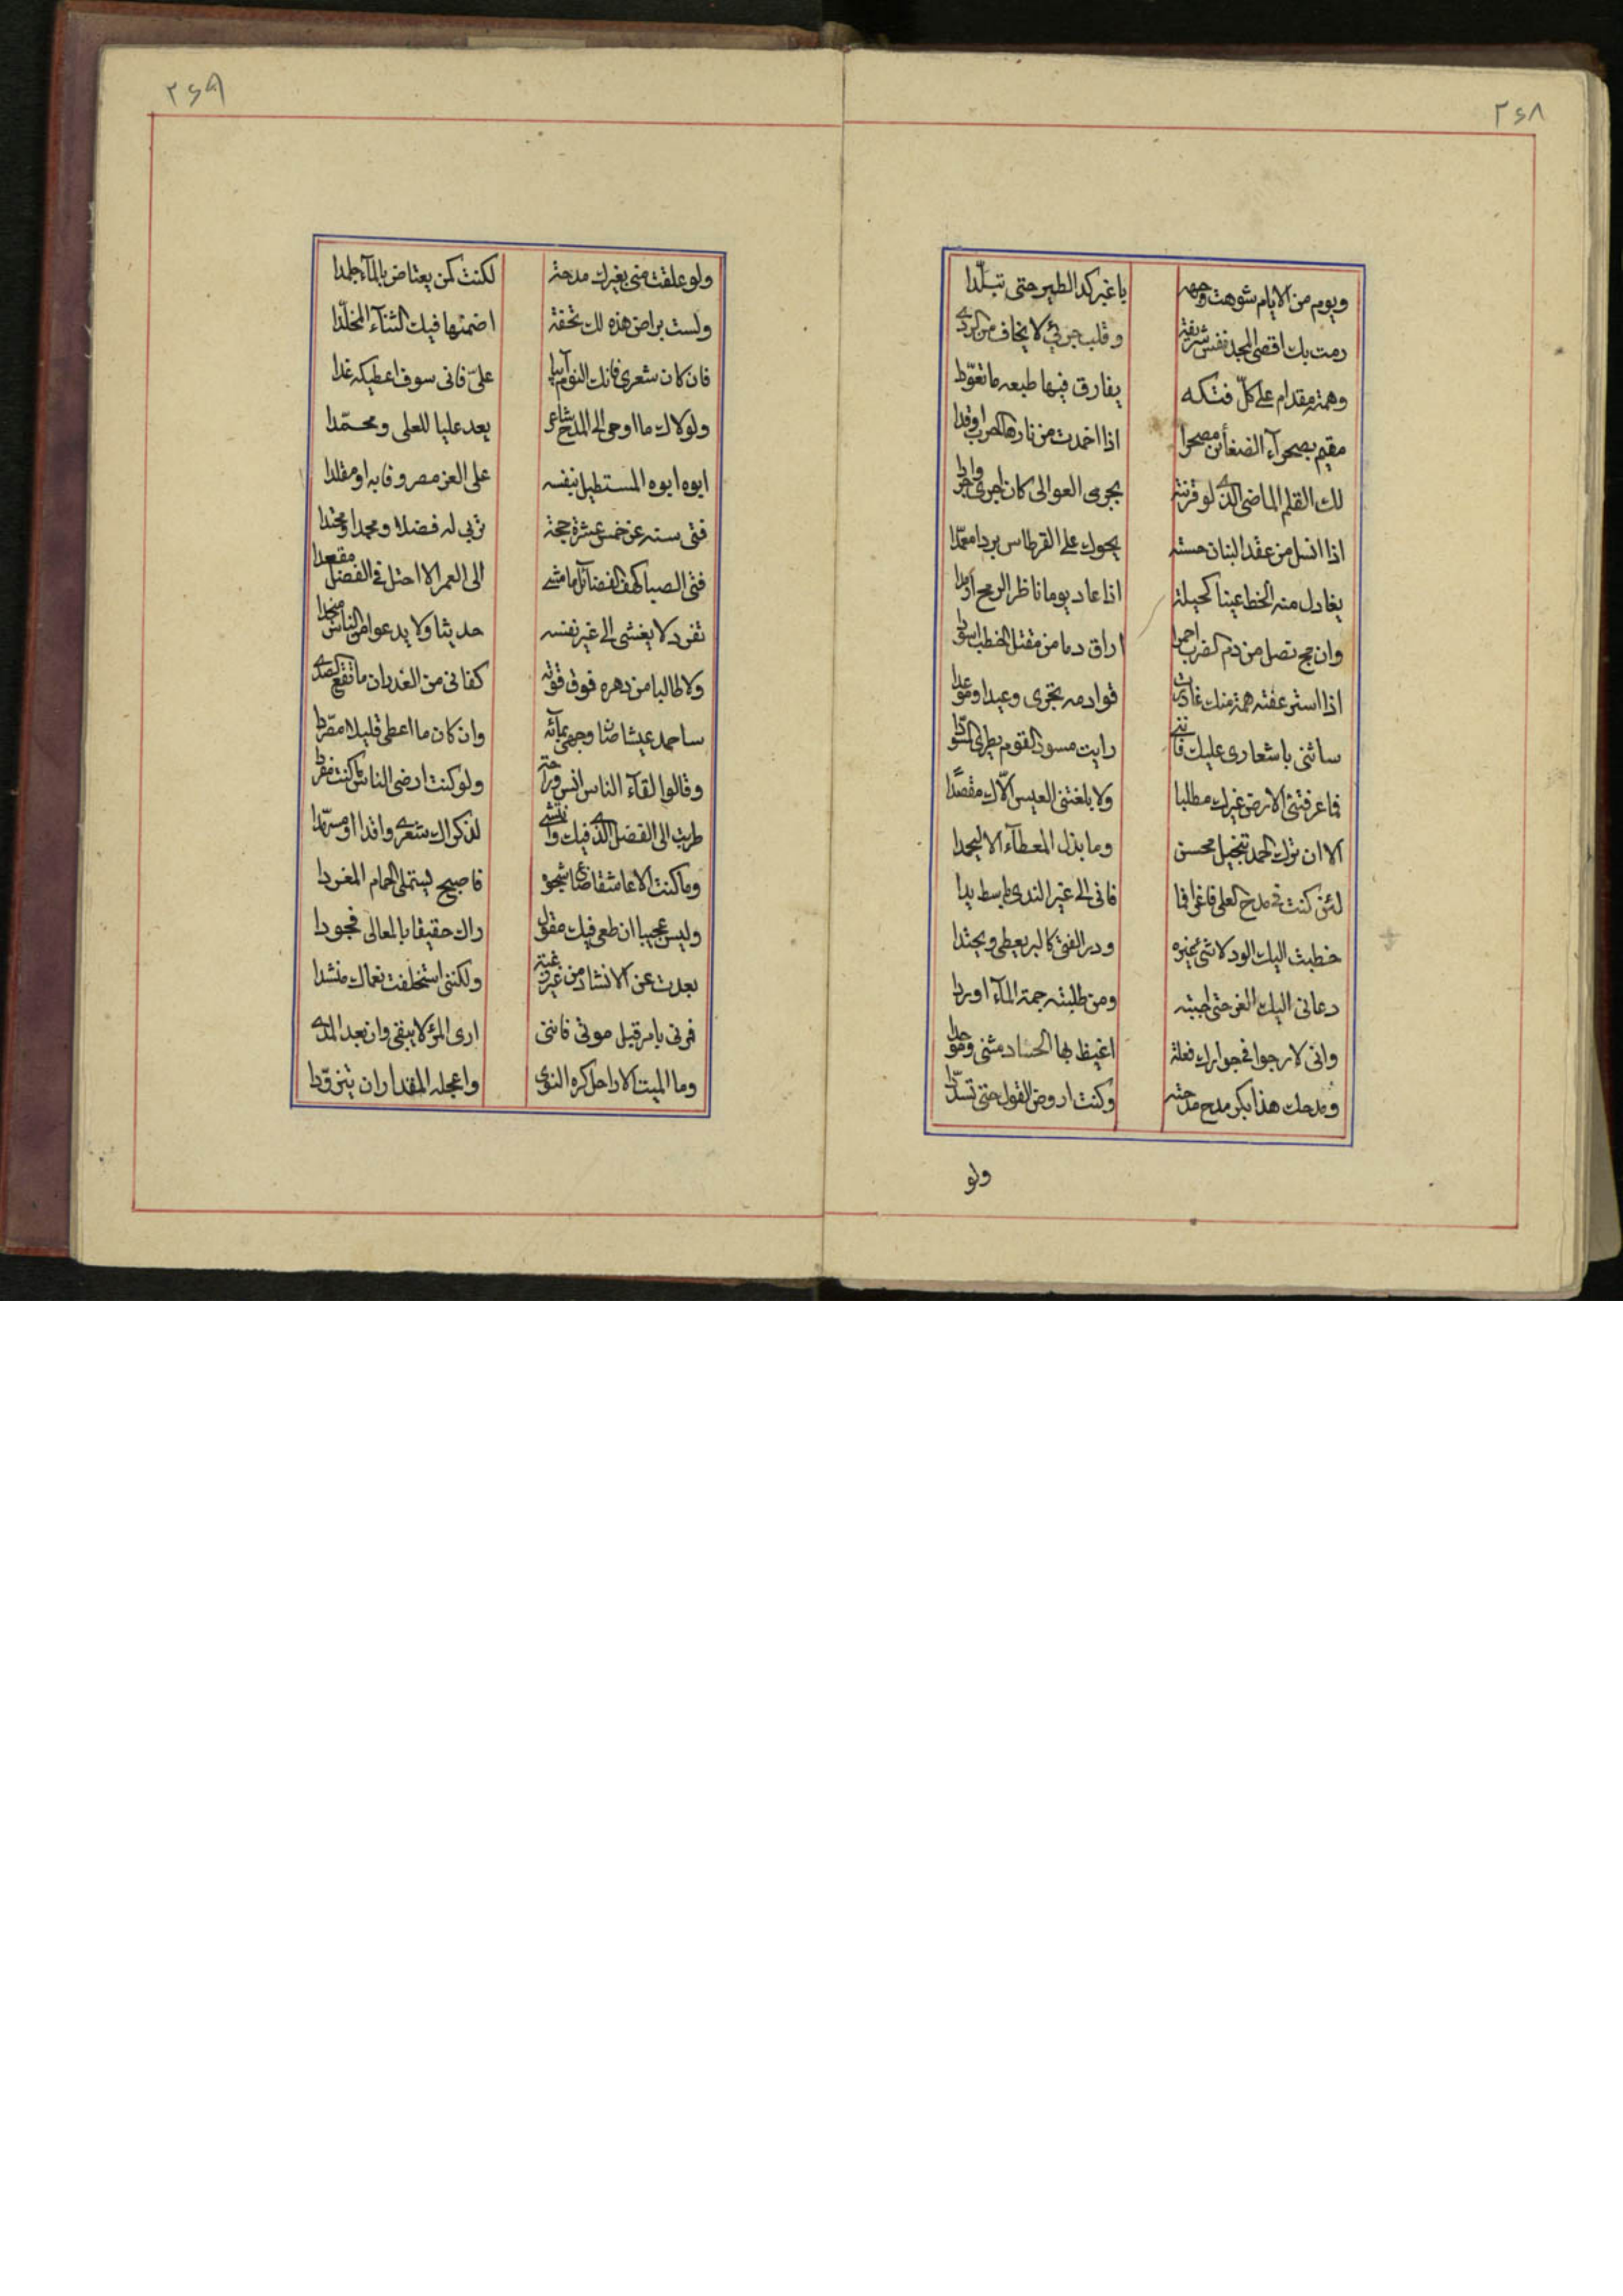 ٢۶٨
ويوم من الايام شوهت وجهه باغبر كد الطير حتى تبلّدا
رمت بك اقصى المجد نفس شريفة وقلب جرئ لا يخاف من الردى
وهمة مقدام على كلّ فتكه يفارق فيها طبعه ما تعوّدا
مقيم بصحرآء الضغائن مصحرا اذا اخمدت من نارها الحرب اوقدا
لك القلم الماضى الذى لو قرنته بجرى العوالى كان اجرى واجودا
اذا انسل من عقد البنان حسبته يحوك على القرطاس بردا معمّدا
يغازل منه الخط عينا كحيلة اذا عاد يوما ناظر الرمح ارمدا
وان مج نصل من دم الضرب احمرا اراق دما من مقتل الخطب اسودا
اذا استرعفته همة منك غادرت قوادمه تجرى وعيدا وموعدا
ساثنى باشعارى عليك فاننى رايت مسود القوم يطرى المسوّدا
فما عرفتنى الارض غيرك مطلبا ولا بلغتنى العيس الّاك مقصدا
الا ان ترك الحمد تبخيل محسن وما بذل المعطآء الا ليحمدا
لئن كنت فى مدح العلى فاغرا فما فانى الى غير الندى باسط يدا
خطبت اليك الود لا شئ غيره وود الفتى كالبر يعطى ويجتدا
دعانى اليك العز حتى اجبته ومن طلبته جمة المآء اوردا
وانى لارجوا فى جوارك فعلة اغيظ بها الحساد مثنى وموحدا
ومدحك هذا بكر مدح مدحته وكنت اروض القول حتى تسدّدا
ولو
٢۶٩
ولو علقت منى بغيرك مدحة لكنت كمن يعتاض بالمآء جلمدا
ولست براض هذه لك تحفة اضمنها فيك الثنآء المخلّدا
فان كان شعرى فاتك اليوم آبيا علىّ فانى سوف اعطيكه غدا
ولولاك ما اوحى الى المدح شاعر يعد عليا للعلى ومحمّدا
ابوه ابوه المستطيل بنفسه على العز مصروفا به او مقلدا
فتى سنه عن خمس عشرة حجة تربى له فضلا ومجدا ومحتدا
فتى الصبا كهف الفضائل ما مشى الى العمر الا احتل فى الفضل مقعدا
تفرد لا يغشى الى غير نفسه حديثا ولا يدعوا من الناس منجدا
ولا طالبا من دهره فوق قوته كفانى من الغدران ما نقع الصدى
ساحمد عيشا صان وجهى بمآئه وان كان ما اعطى قليلا مصرّدا
وقالوا لقآء الناس انس وراحة ولو كنت ارضى الناس ما كنت مفردا
طربت الى الفضل الذى فيك وانتشى لذكراك شعرى واقدا او مسرّدا
وما كنت الا عاشقا ضاع شجوه فاصبح يستملى الحمام المغردا
وليس عجيبا ان طغى فيك مقول راك حقيقا بالمعالى فجودا
بعدت عن الانشاد من غير رغبة ولكننى استخلفت نعماك منشدا
فمرنى بامر قبل موتى فاننى ارى المرء لا يبقى وان بعد المدى
وما الميت الا راحل كره النوى واعجله المقدار ان يتزوّدا